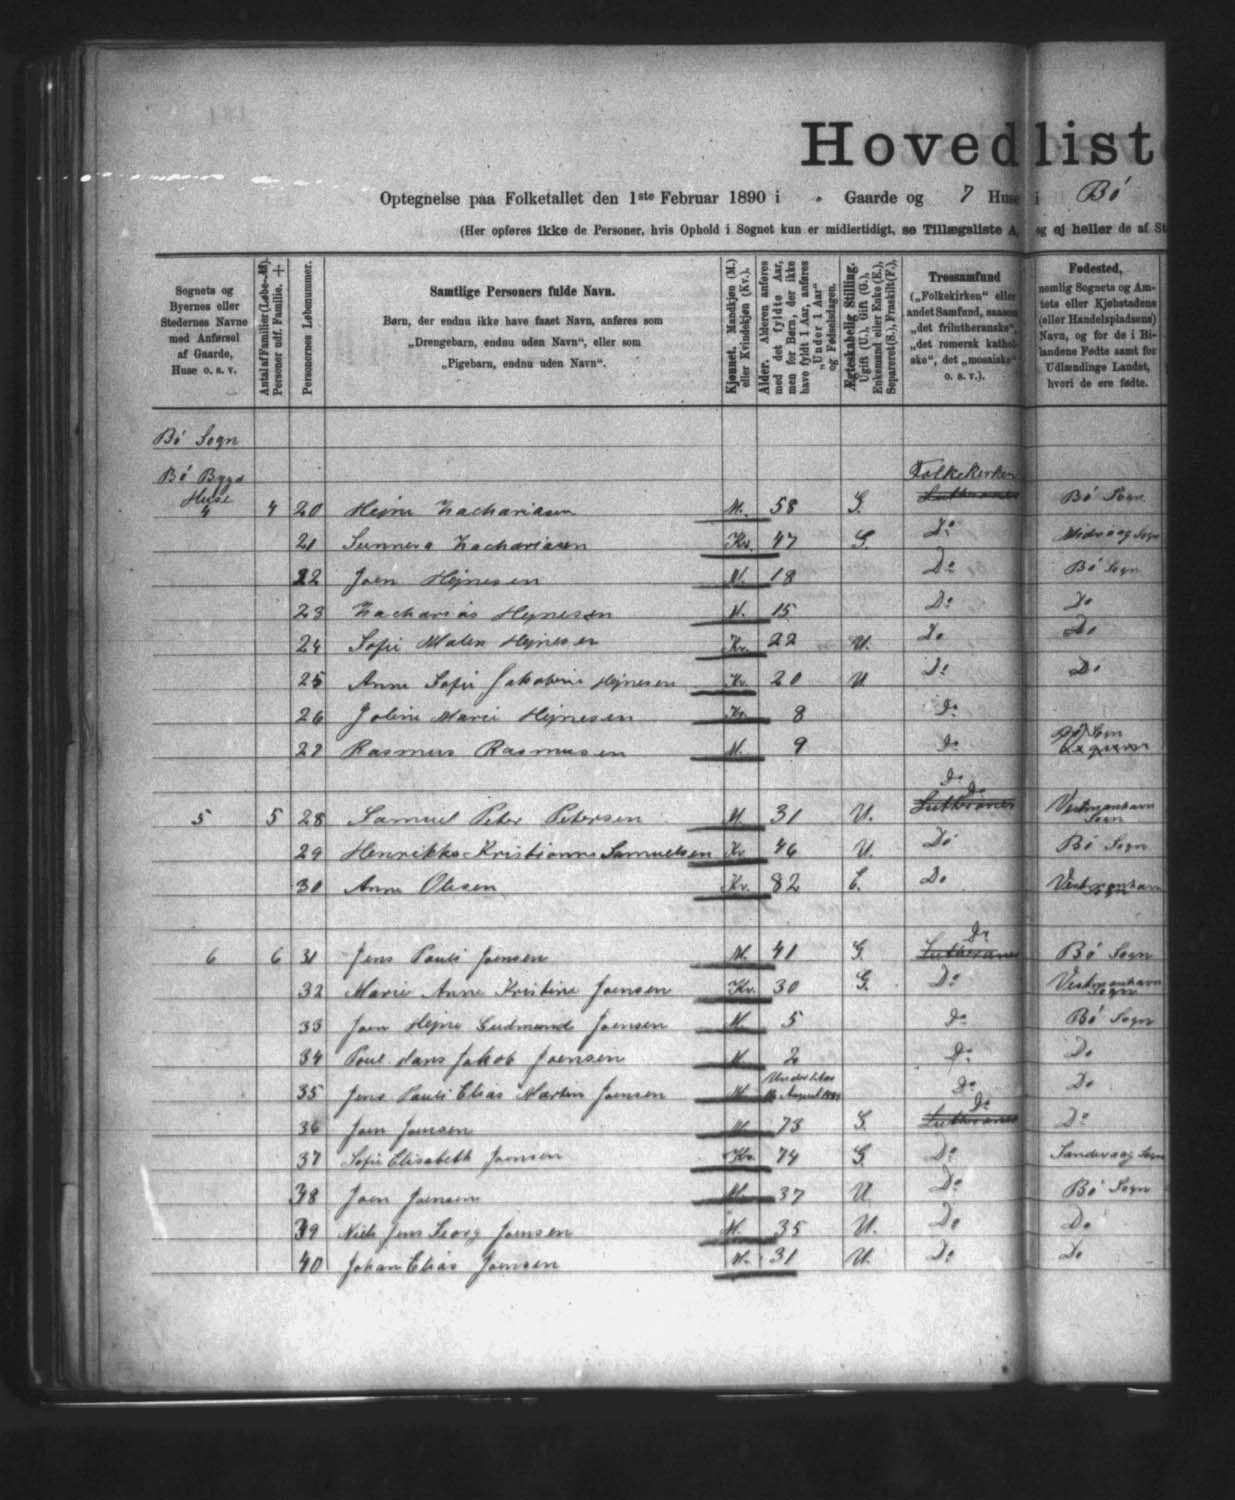 Hovedlist
Optegnelse paa Folketallet den 1ste Februar 1890 i " Gaarde og 7 Huse i Bø
(Her opføres ikke de Personer, hvis Ophold i Sognet kun er midlertidigt, se Tillægsliste A, og ej heller de af St
Sognets og Byernes eller Stedernes Navne med Anførsel af Gaarde, Huse o. s. v.
Antal af Familier (Løbe-№). Personer udf. Familie. +
Personernes Løbenummer.
Samtlige Personers fulde Navn.
Børn, der endnu ikke have faaet Navn, anføres som
„Drengebarn, endnu uden Navn“, eller som
„Pigebarn, endnu uden Navn“.
Kjønnet. Mandkjøn (M.) eller Kvindekjøn (Kv.).
Alder. Alderen anføres med det fyldte Aar, men for Børn, der ikke have fyldt 1 Aar, anføres „Under 1 Aar“ og Fødselsdagen.
Ægteskabelig Stilling. Ugift (U.), Gift (G.), Enkemand eller Enke (E.), Separeret (S.), Fraskilt (F.),
Trossamfund („Folkekirken“ eller andet Samfund, saasom „det frilutheranske“, „det romersk katholske“, det „mosaiske“ o. s. v.).
Fødested, nemlig Sognets og Amtets eller Kjøbstadens (eller Handelspladsens) Navn, og for de i Bilandene Fødte samt for Udlændinge Landet, hvori de ere fødte.
Bø Sogn
Bø Bygd Folkekirken
Huse
4 4 20 Hejne Zachariasen M. 58 G. Lutheraner Bø Sogn
21 Sunneva Zachariasen Kv. 47 G. Do Midvaag Sogn
22 Joen Hejnesen M. 18 Do Bø Sogn
23 Zacharias Hejnesen M. 15 Do Do
24 Sofie Malen Hejnesen Kv. 22 U. Do Do
25 Anne Sofie Jakobine Hejnesen Kv. 20 U Do Do
26 Joline Marie Hejnesen Kv. 8 Do
27 Rasmus Rasmussen M. 9 Do
Do
5 5 28 Samuel Peter Petersen M. 31 U. Lutheraner Do Vestmanhavn Sogn
29 Henrikke Kristianne Samuelsen Kv. 46 U. Do Bø Sogn
30 Anne Olesen Kv. 82 E. Do Vestmanhavn Sogn
6 6 31 Jens Pauli Joensen M. 41 G. Lutheraner Do Bø Sogn
32 Marie Anne Kristine Joensen Kv. 30 G. Do Vestmanhavn Sogn
33 Joen Hejne Gudmund Joensen M. 5 Do Bø Sogn
34 Poul Hans Jakob Joensen M. 2 Do Do
35 Jens Pauli Elias Martin Joensen M. Under 1 Aar August Do Do
36 Joen Joensen M. 73 G. Lutheraner Do Do
37 Sofie Elisabeth Joensen Kv. 74 G. Do Sandevaag Sogn
38 Joen Joensen M. 37 U. Do Bø Sogn
39 Niels Jens Georg Joensen M. 35 U. Do Do
40 Johan Elias Joensen M. 31 U. Do Do